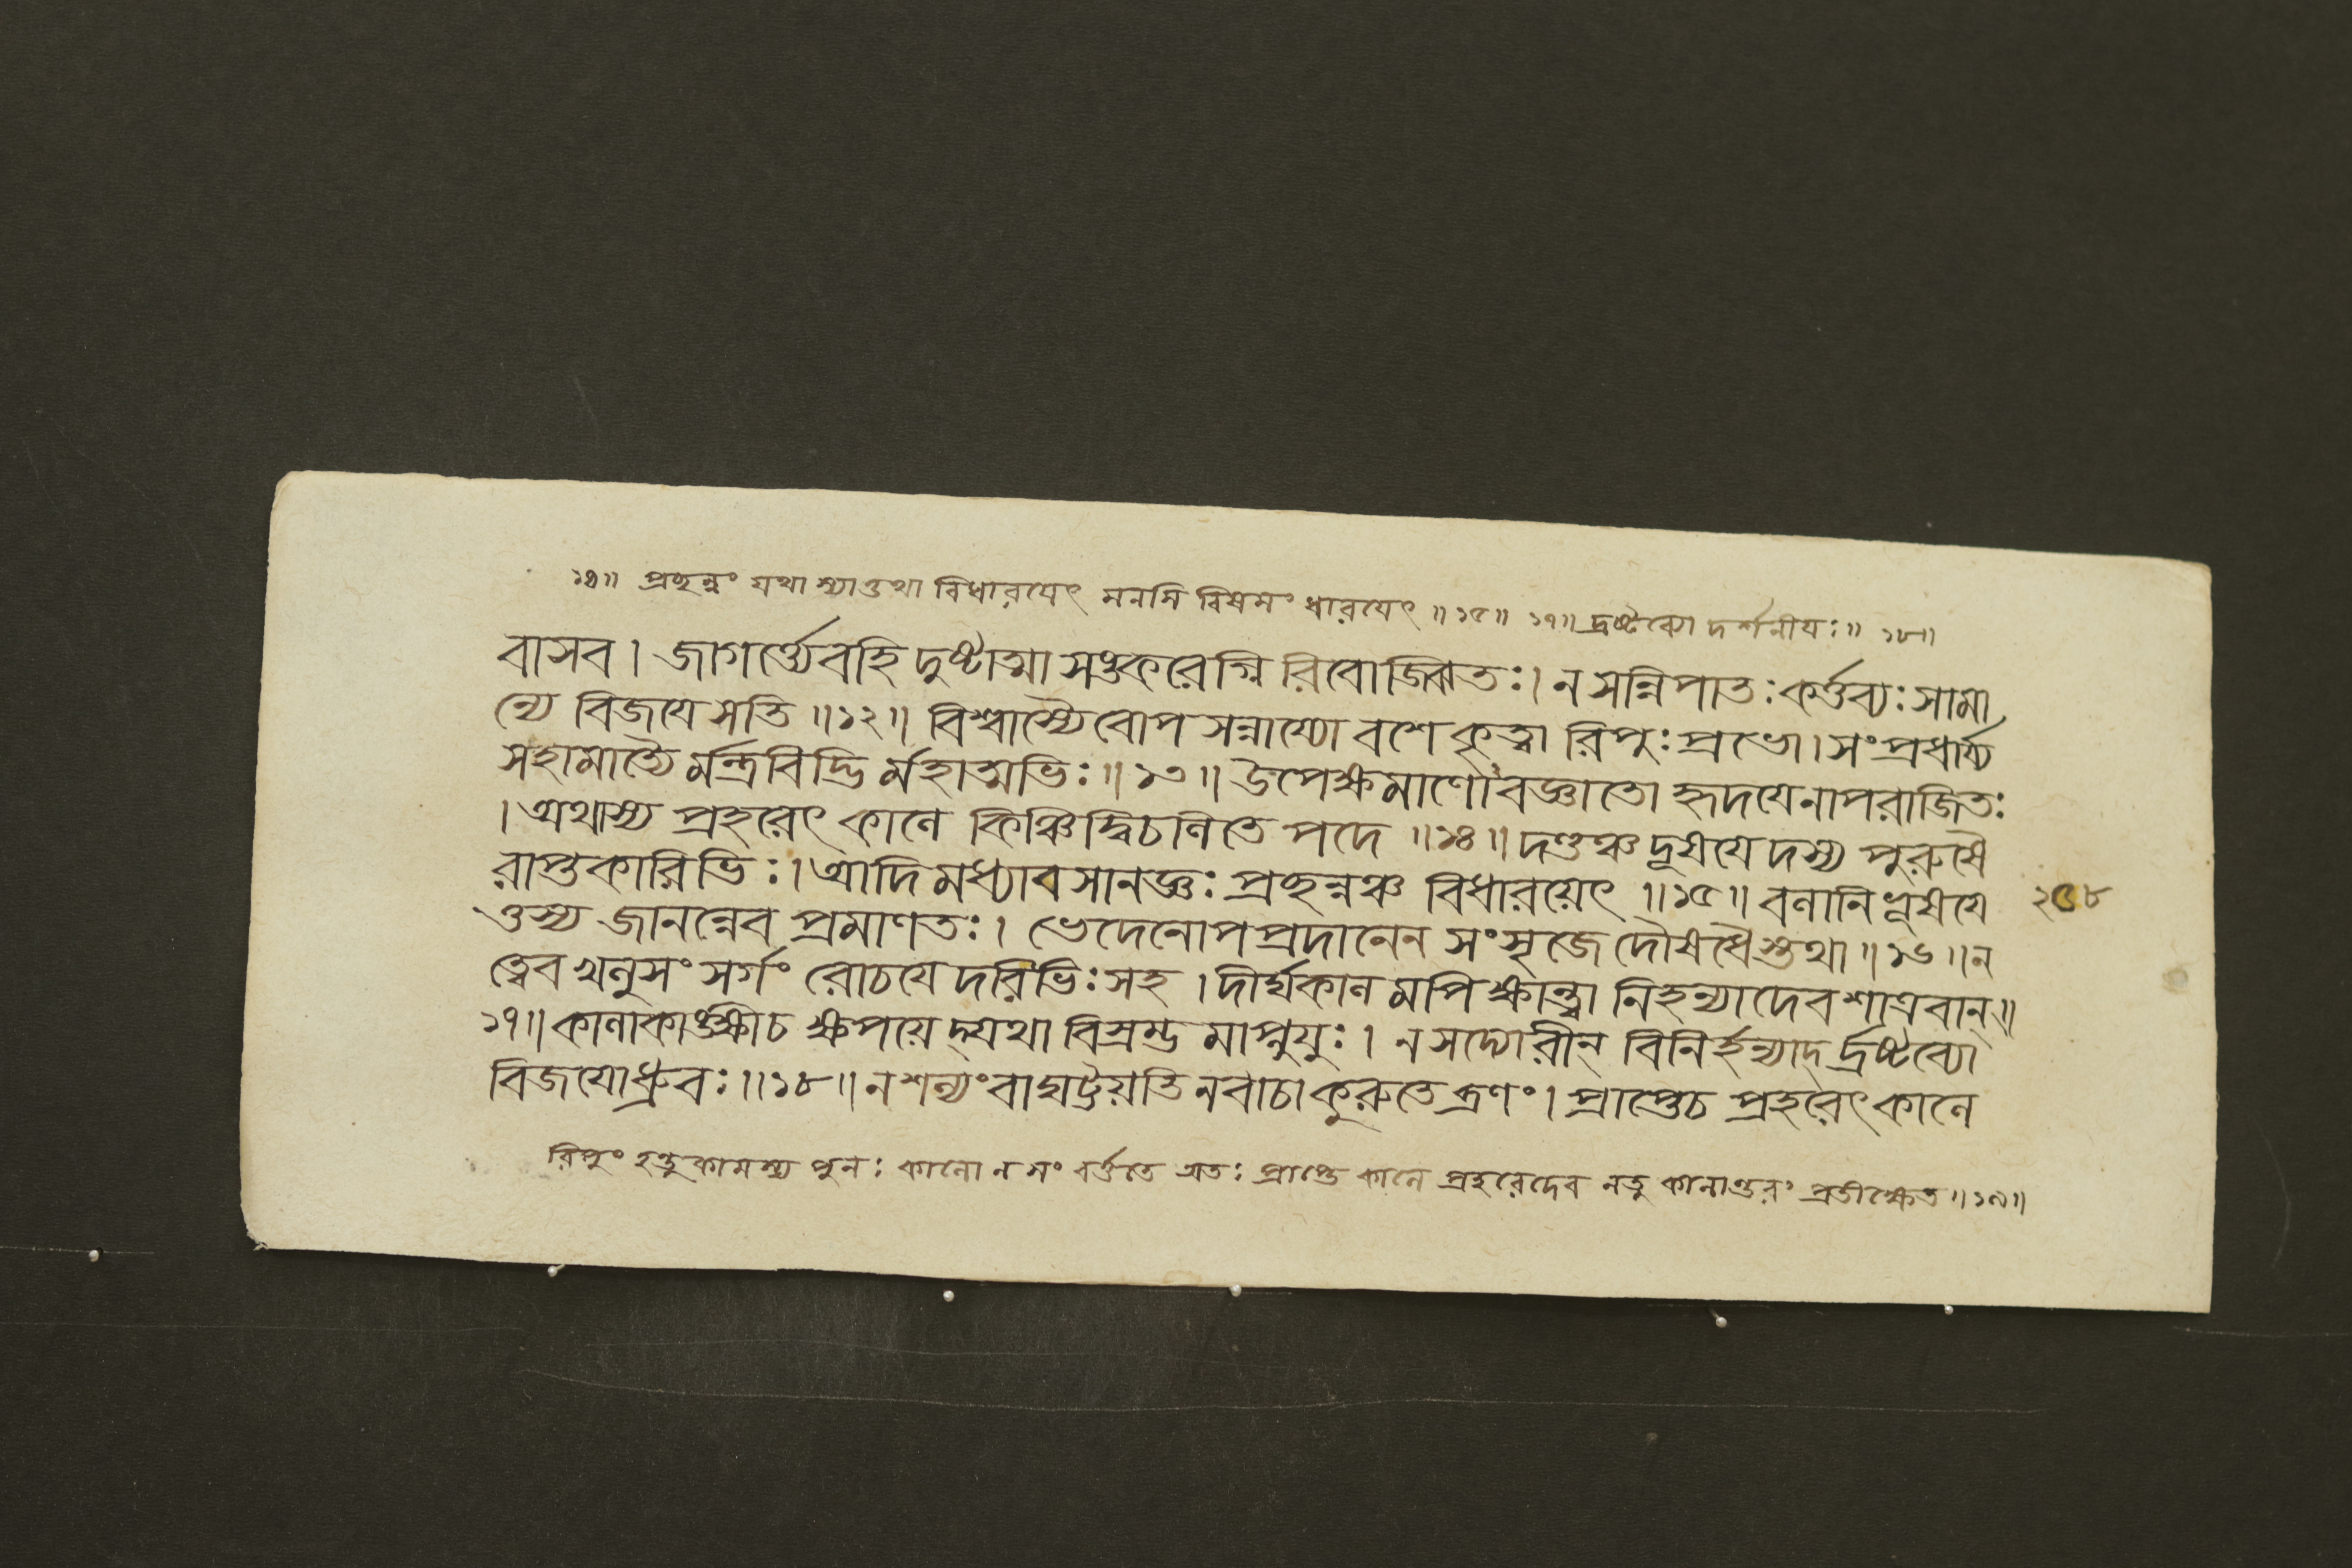 ১৪॥ প্রছন্নং যথা স্যাত্তথা বিধারয়েৎ মনসি বিষমং ধারয়েৎ ॥১৫॥ ১৭॥ দ্রষ্টব্যো দর্শনীয়ঃ॥ ১৮॥
বাসব। জাগর্ত্ত্যেবহি দুষ্টাত্মা সঙ্করেগ্নি রিবোজ্ঝিতঃ। ন সন্নিপাতঃ কর্ত্তব্যঃ সামা
ন্যে বিজয়ে সতি ॥১২॥ বিশ্বাস্যৈবোপ সন্নাম্যো বশে কৃত্বা রিপুঃ প্রভো। সংপ্রধার্য্য
সহামাত্যৈ র্মন্ত্রবিদ্ভি র্মহাত্মভিঃ॥১৩॥ উপেক্ষমাণোবজ্ঞাতো হৃদয়েনাপরাজিতঃ
। অথাস্য প্রহরেৎ কালে কিঞ্চিদ্বিচলিতে পদে ॥১৪॥ দণ্ডঞ্চ দূষয়ে দস্য পুরুষৈ
রাপ্তকারিভিঃ। আদি মধ্যাবসানজ্ঞঃ প্রছন্নঞ্চ বিধারয়েৎ ॥১৫॥ বলানি দূষয়ে ২৫৮
ত্তস্য জানন্নেব প্রমাণতঃ। ভেদেনোপপ্রদানেন সংসৃজে দৌষধৈস্তথা॥১৬॥ন
ত্বেব খলুসং সর্গং রোচয়ে দরিভিঃ সহ। দীর্ঘকাল মপি ক্ষান্ত্বা নিহন্যাদেব শাত্রবান্॥
১৭॥ কালাকাঙ্ক্ষীচ ক্ষপয়ে দ্যথা বিস্রম্ভ মাপ্নুযুঃ। ন সদ্যোরীন্ বিনির্হন্যাদ্ দ্রষ্টব্যো
বিজয়োধ্রুবঃ॥১৮॥ ন শল্যং বা ঘট্টয়তি নবাচা কুরুতে ব্রণং। প্রাপ্তেচ প্রহরেৎ কালে
রিপুং হন্তুকামস্য পুনঃ কালো ন সং বর্ত্ততে অতঃ প্রাপ্তে কালে প্রহরেদেব নতু কালান্তরং প্রতীক্ষেত॥১৯॥